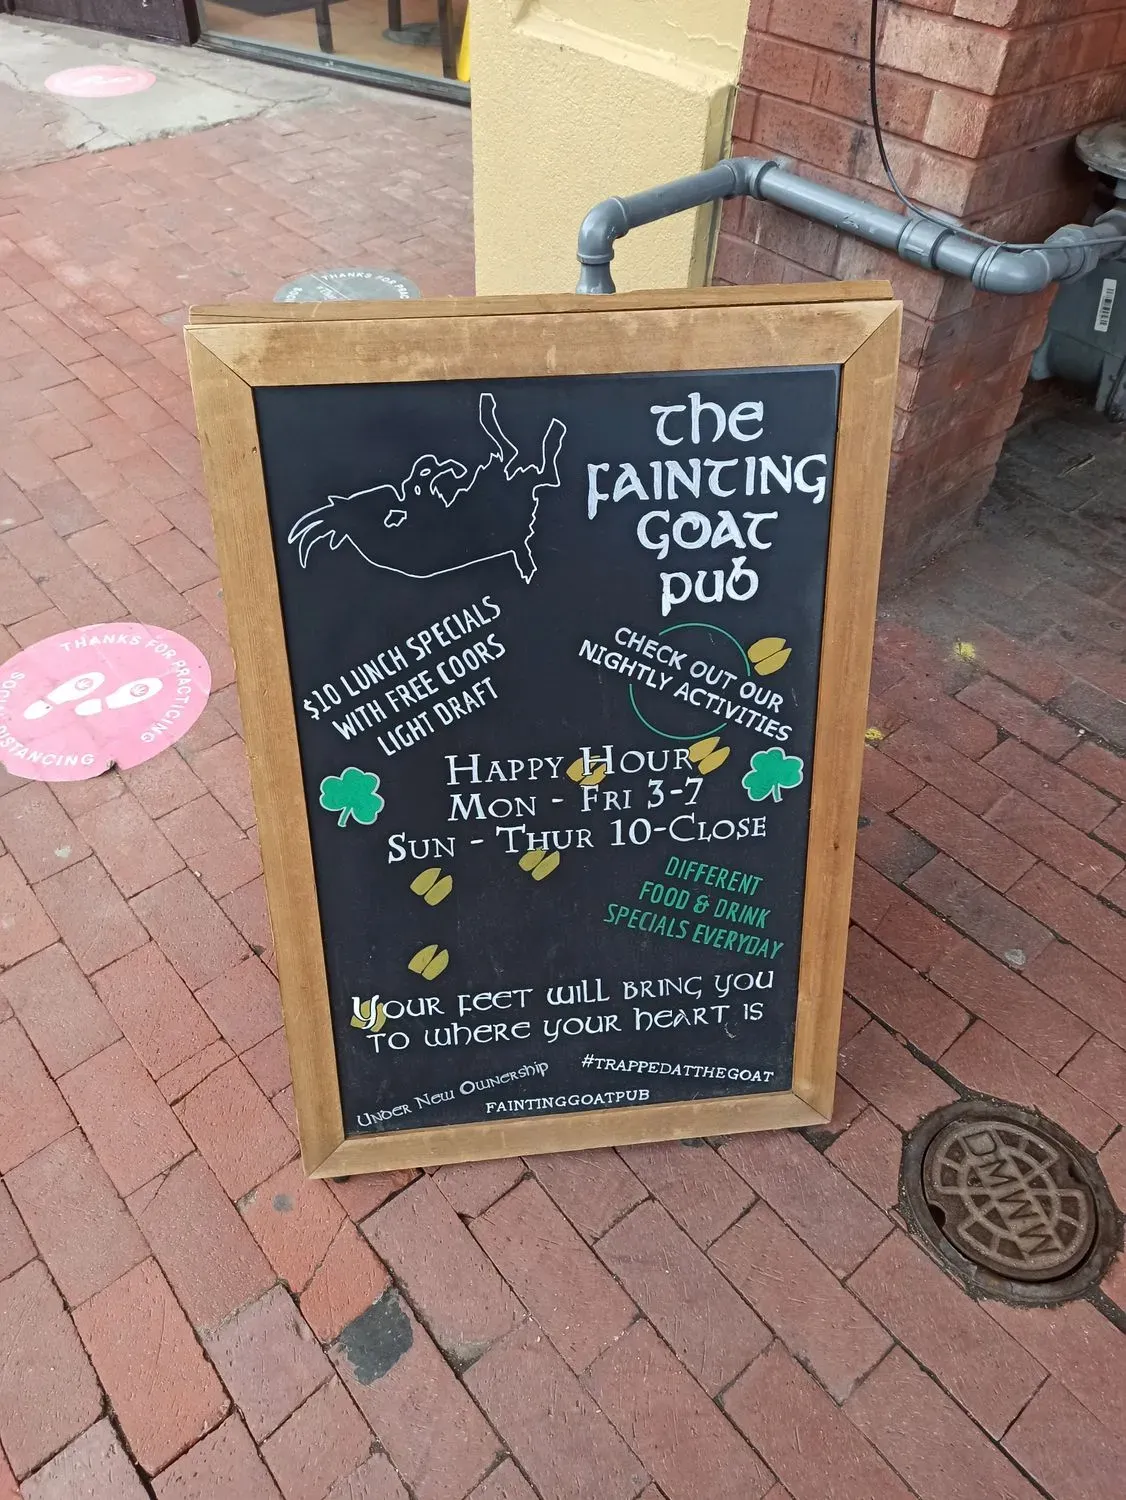 The
Fainting
Goat
Pub
$10 LUNCH SPECIALS
WITH FREE COORS
LIGHT DRAFT
CHECK OUT OUR
NIGHTLY ACTIVITIES
Happy Hour
Mon - Fri 3-7
Sun - Thur 10-Close
DIFFERENT
FOOD & DRINK
SPECIALS EVERYDAY
Your feet will bring you
to where your heart is
Under New Ownership
#TRAPPEDATTHEGOAT
FAINTINGGOATPUB
THANKS FOR PRACTICING
SOCIAL DISTANCING
THANKS FOR
DMWW